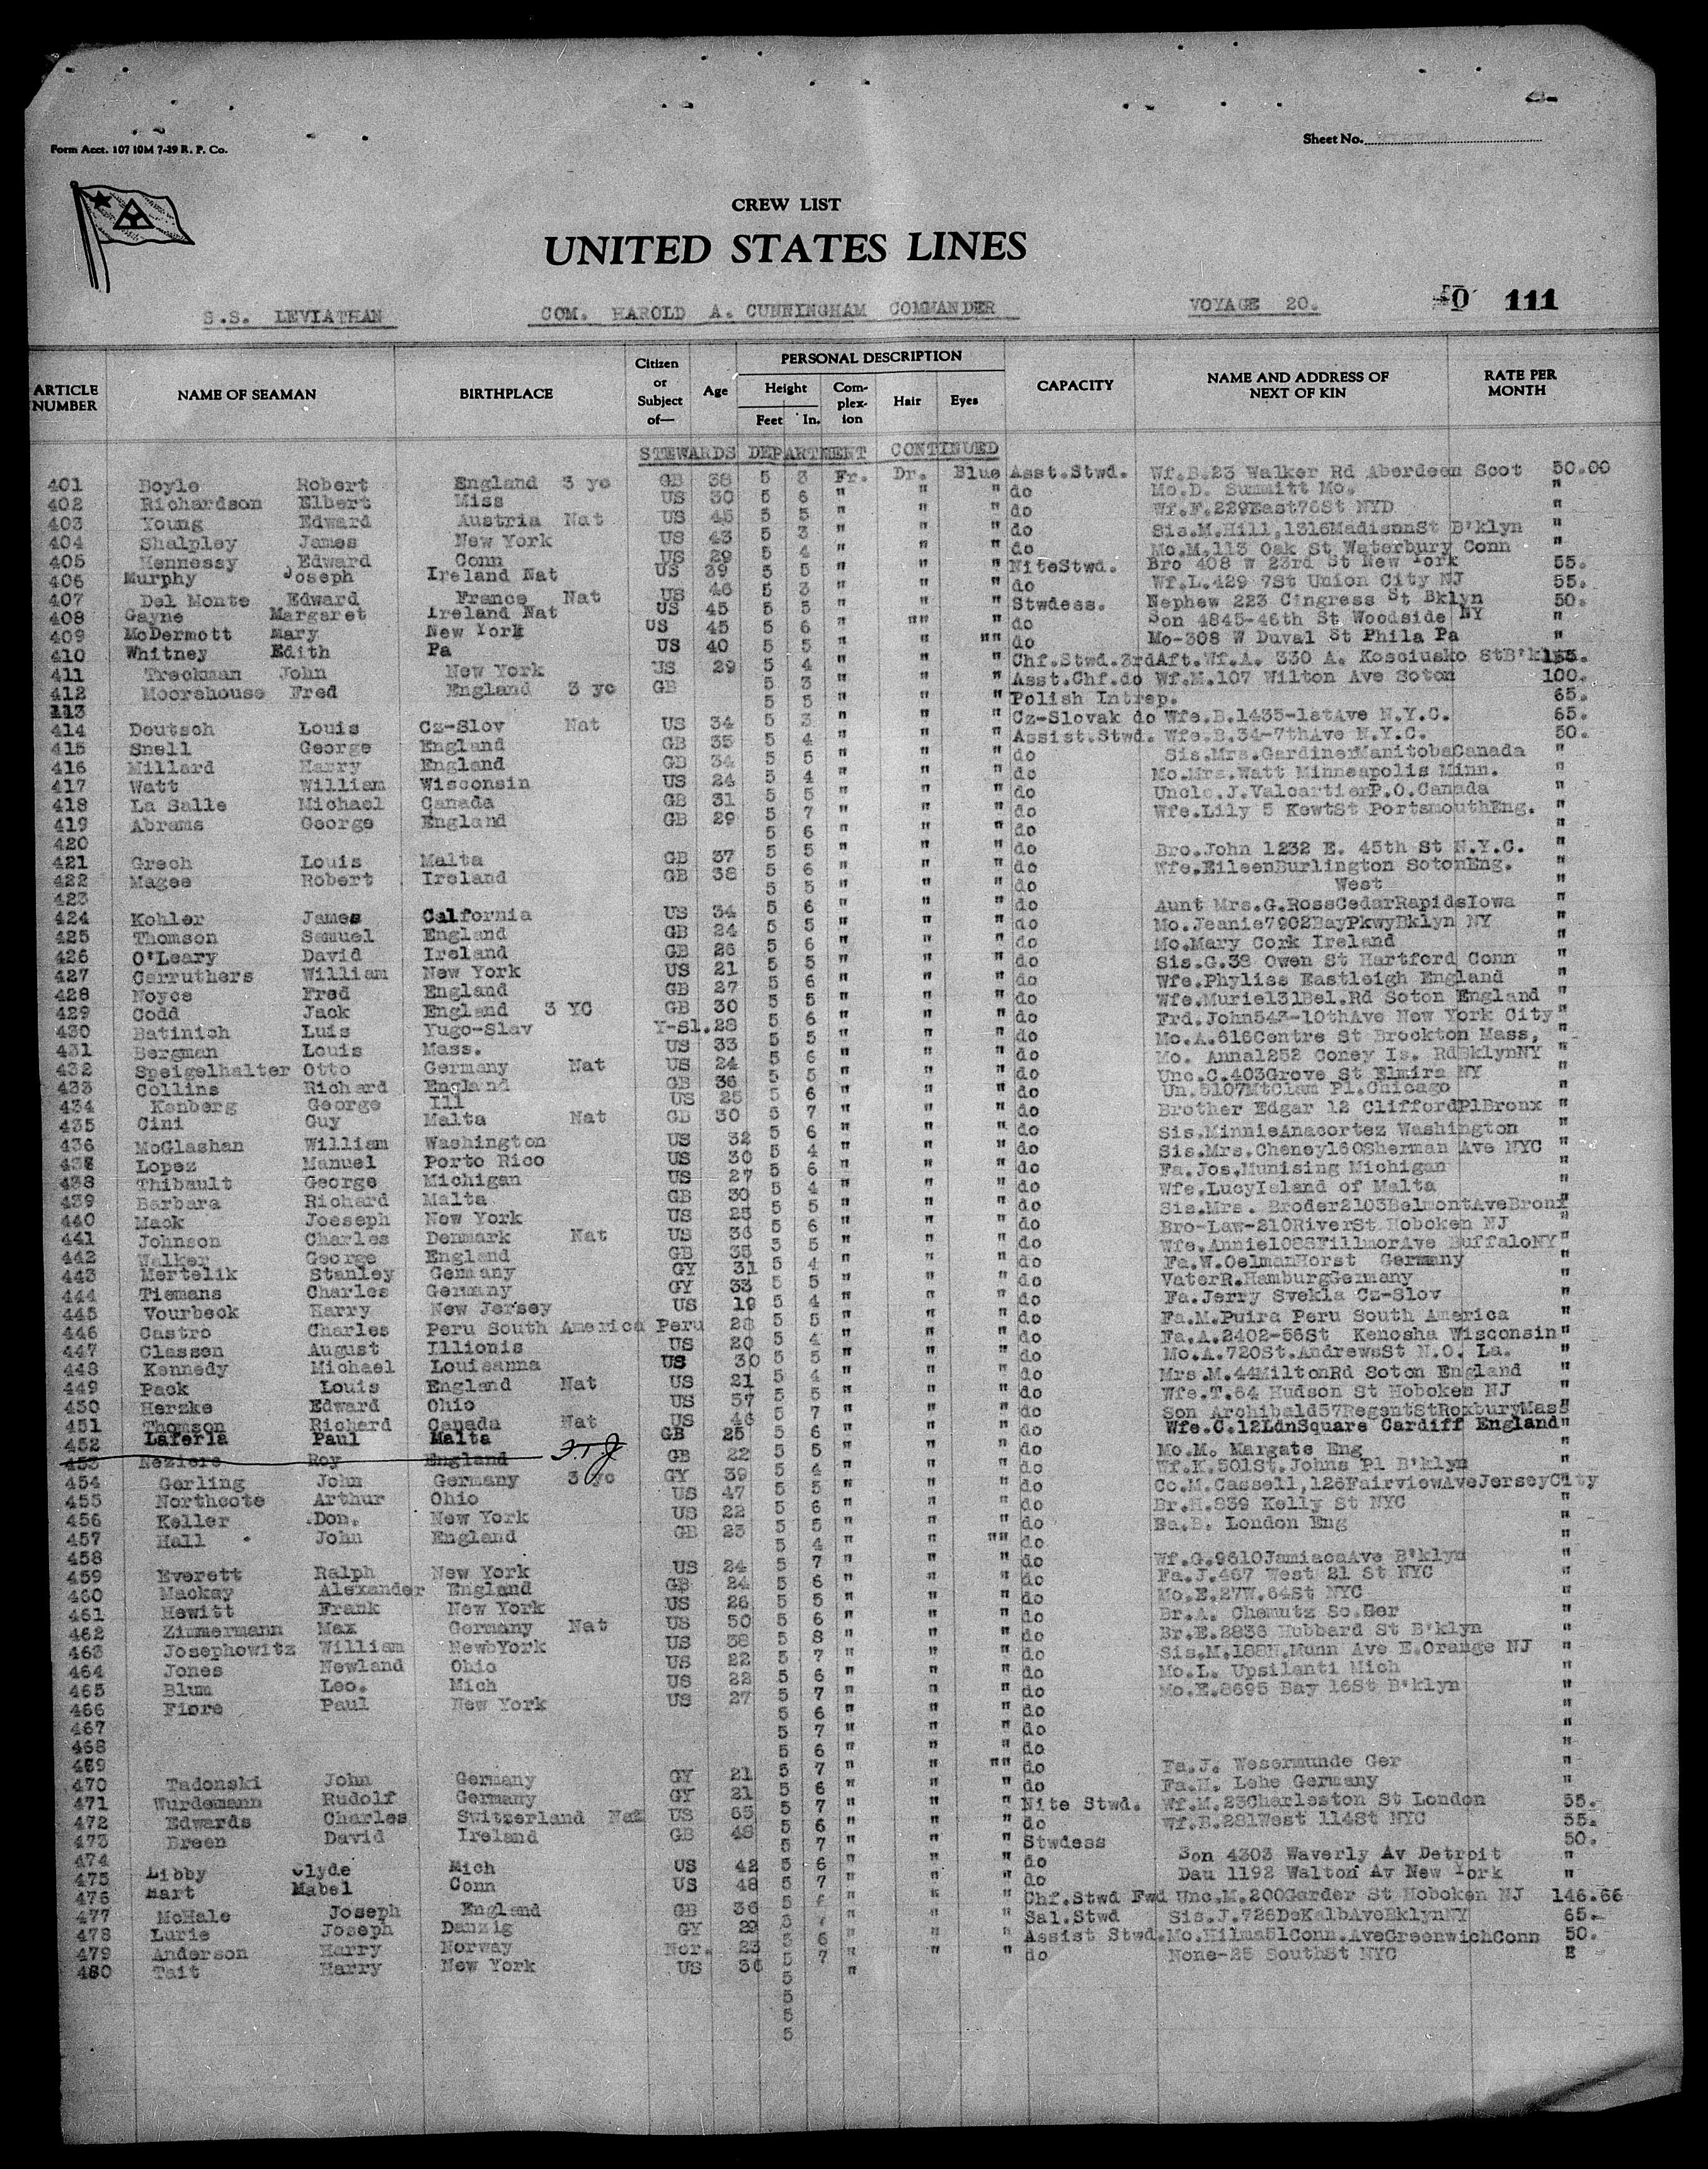 Form Acct. 107 10M 7-29 R. P. Co.
Sheet No.
CREW LIST
UNITED STATES LINES
S.S. LEVIATHAN COM. HAROLD A. CUNNINGHAM COMMANDER VOYAGE 20. 111
ARTICLE NUMBER NAME OF SEAMAN BIRTHPLACE Citizen or Subject of— Age PERSONAL DESCRIPTION Height Feet In. Com-plex-ion Hair Eyes CAPACITY NAME AND ADDRESS OF NEXT OF KIN RATE PER MONTH
STEWARDS DEPARTMENT CONTINUED
401 Boyle Robert England 3 yc GB 38 5 3 Fr. Dr. Blue Asst.Stwd. Wf.B.23 Walker Rd Aberdeen Scot 50.00
402 Richardson Elbert Miss US 30 5 6 " " " do Mo.D. Summitt Mo. "
403 Young Edward Austria Nat US 45 5 5 " " " do Wf.F.229East76St NYD "
404 Shalpley James New York US 43 5 3 " " " do Sis.M.Hill,1316MadisnnSt B'klyn "
405 Hennessy Edward Conn US 29 5 4 " " " do Mo.M.113 Oak St Waterbury Conn "
406 Murphy Joseph Ireland Nat US 39 5 5 " " " NiteStwd. Bro 408 W 23rd St New York 55.
407 Del Monte Edward France Nat US 46 5 3 " " " do Wf.L.429 7St Union City NJ 55.
408 Gayne Margaret Ireland Nat US 45 5 5 " " " Stwdess. Nephew 223 Cingress St Bklyn 50.
409 McDermott Mary New York US 45 5 6 " "" " do Son 4845-46th St Woodside NY "
410 Whitney Edith Pa US 40 5 5 " " "" do Mo-308 W Duval St Phila Pa "
411 Treckman John New York US 29 5 4 " " " Chf.Stwd.3rdAft.Wf.A. 330 A. Kosciusko StB'klyn
412 Moorehouse Fred England 3 yc GB 5 3 " " " Asst.Chf.do Wf.M.107 Wilton Ave Soton 100.
113 5 5 " " " Polish Intrep. 65.
414 Deutsch Louis Cz-Slov Nat US 34 5 3 " " " Cz-Slovak do Wfe.B.1435-1stAve N.Y.C. 65.
415 Snell George England GB 35 5 4 " " " Assist.Stwd. Wfe.B.34-7thAve N.Y.C. 50.
416 Millard Harry England GB 34 5 5 " " " do Sis.Mrs.GardinerManitobaCanada "
417 Watt William Wisconsin US 24 5 4 " " " do Mo.Mrs.Watt Minneapolis Minn. "
418 La Salle Michael Canada GB 31 5 5 " " " do Uncle.J.ValcartierP.O.Canada "
419 Abrams George England GB 29 5 7 " " " do Wfe.Lily 5 KewtSt PortsmouthEng. "
420 5 6 " " " do "
421 Grech Louis Malta GB 37 5 5 " " " do Bro.John 1232 E. 45th St N.Y.C. "
422 Magee Robert Ireland GB 38 5 6 " " " do Wfe.EileenBurlington SotonEng. "
423 5 5 " " " do West "
424 Kohler James Calfornia US 34 5 6 " " " do Aunt Mrs.G.RossCedarRapidsIowa "
425 Thomson Samuel England GB 24 5 5 " " " do Mo.Jeanie7902BayPkwyBklyn NY "
426 O'Leary David Ireland GB 26 5 6 " " " do Mo.Mary Cork Ireland "
427 Carruthers William New York US 21 5 5 " " " do Sis.G.38 Owen St Hartford Conn "
428 Noyce Fred England GB 27 5 6 " " " do Wfe.Phyliss Eastleigh England "
429 Codd Jack England 3 YC GB 30 5 5 " " " do Wfe.Muriel31Bel.Rd Soton England "
430 Batinich Luis Yugo-Slav Y-Sl.28 5 6 " " " do Frd.John543-10thAve New York City "
431 Bergman Louis Mass. US 33 5 5 " " " do Mo.A.616Centre St Brockton Mass, "
432 Speigelhalter Otto Germany Nat US 24 5 6 " " " do Mo. Anna1252 Coney Is. RdBklynNY "
433 Collins Richard England GB 36 5 5 " " " do Unc.C.403Grove St Elmira NY "
434 Kenberg George Ill US 25 5 6 " " " do Un.5107MtClam Pl.Chicago "
435 Cini Guy Malta Nat GB 30 5 7 " " " do Brother Edgar 12 CliffordPlBronx "
436 McGlashan William Washington US 32 5 6 " " " do Sis.MinnieAnacortez Washington "
438 Lopez Manuel Porto Rico US 30 5 4 " " " do Sis.Mrs.Cheney160Sherman Ave NYC "
438 Thibault George Michigan US 27 5 6 " " " do Fa.Jos.Munising Michigan "
439 Barbara Richard Malta GB 30 5 4 " " " do Wfe.LucyIsland of Malta "
440 Mack Joeseph New York US 25 5 5 " " " do Sis.Mrs. Broder2103BelmontAveBronx "
441 Johnson Charles Denmark Nat US 36 5 6 " " " do Bro-Law-210RiverSt Hoboken NJ "
442 Walker George England GB 35 5 5 " " " do Wfe.Annie1088FillmorAve BuffaloNY "
443 Mertelik Stanley Germany GY 31 5 4 " " " do Fa.W.OelmanHorst Germany "
444 Tiemans Charles Germany GY 33 5 5 " " " do VaterR.HamburgGermany "
445 Vourbeck Harry New Jersey US 19 5 4 " " " do Fa.Jerry Svekla Cz-Slov "
446 Castro Charles Peru South America Peru 28 5 5 " " " do Fa.M.Puira Peru South America "
447 Classen August Illionis US 20 5 4 " " " do Fa.A.2402-56St Kenosha Wisconsin "
448 Kennedy Michael Louisanna US 30 5 5 " " " do Mo.A.720St.AndrewsSt N.O. La. "
449 Pack Louis England Nat US 21 5 4 " " " do Mrs.M.44MiltonRd Soton England "
450 Herzke Edward Ohio US 57 5 5 " " " do Wfe.T.64 Hudson St Hoboken NJ "
451 Thomson Richard Canada Nat US 46 5 7 " " " do Son Archibald57RegentStRoxburyMass
452 Laferla Paul Malta GB 25 5 6 " " " do Wfe.C.12LdnSquare Cardiff England "
453 Neziere Roy England GB 22 5 5 " " " do Mo.M. Margate Eng "
454 Gerling John Germany 3 yc GY 39 5 4 " " " do Wf.K.501St.Johns Pl B'klyn "
455 Northcote Arthur Ohio US 47 5 5 " " " do Co.M.Cassell,126FairviewAveJerseyCity
456 Keller Don. New York US 22 5 6 " " " do Br.H.839 Kelly St NYC "
457 Hall John England GB 23 5 5 " " " do Fa.B. London Eng "
458 5 4 " " "" do "
459 Everett Ralph New York US 24 5 7 " " " do Wf.G.9610JamiacaAve B'klyn "
460 Mackay Alexander England GB 24 5 6 " " " do Fa.J.467 West 21 St NYC "
461 Hewitt Frank New York US 26 5 5 " " " do Mo.E.27W.64St NYC "
462 Zimmermann Max Germany Nat US 50 5 6 " " " do Br.A. Chemutz So.Ger "
463 Josephowitz William NewbYork US 38 5 8 " " " do Br.E.2836 Hubbard St B'klyn "
464 Jones Newland Ohio US 22 5 7 " " " do Sis.M.188N.Munn Ave E.Orange NJ "
465 Blum Leo. Mich US 22 5 6 " " " do Mo.L. Upsilanti Mich "
466 Fiore Paul New York US 27 5 7 " " " do Mo.E.8695 Bay 16St B'klyn "
467 5 6 " " " do "
468 5 7 " " " do "
469 5 6 " " " do "
470 Tadonski John Germany GY 21 5 7 " " "" do Fa.J. Wesermunde Ger "
471 Wurdemann Rudolf Germany GY 21 5 6 " " " do Fa.H. Lehe Germany "
472 Edwards Charles Switzerland Nat US 65 5 7 " " " Nite Stwd. Wf.M.23Charleston St London 55.
473 Breen David Ireland GB 48 5 6 " " " do Wf.B.281West 114St NYC 55.
474 5 7 " " " Stwdess 50.
475 Libby Clyde Mich US 42 5 6 " " " do Son 4303 Waverly Av Detroit "
476 Hart Mabel Conn US 48 5 7 " " " do Dau 1192 Walton Av New York "
477 McHale Joseph England GB 36 5 " " " Chf.Stwd Fwd Unc.M.200Garder St Hoboken NJ 146.66
478 Lurie Joseph Danzig GY 29 5 " " " Sal.Stwd Sis.J.726DeKalbAveBklynNY 65.
479 Anderson Harry Norway Nor. 23 5 6 " " " Assist Stwd.Mo.Hilma51Conn.AveGreenwichConn 50.
480 Tait Harry New York US 36 5 7 " " " do None-25 SouthSt NYC
5 "
5
5
5